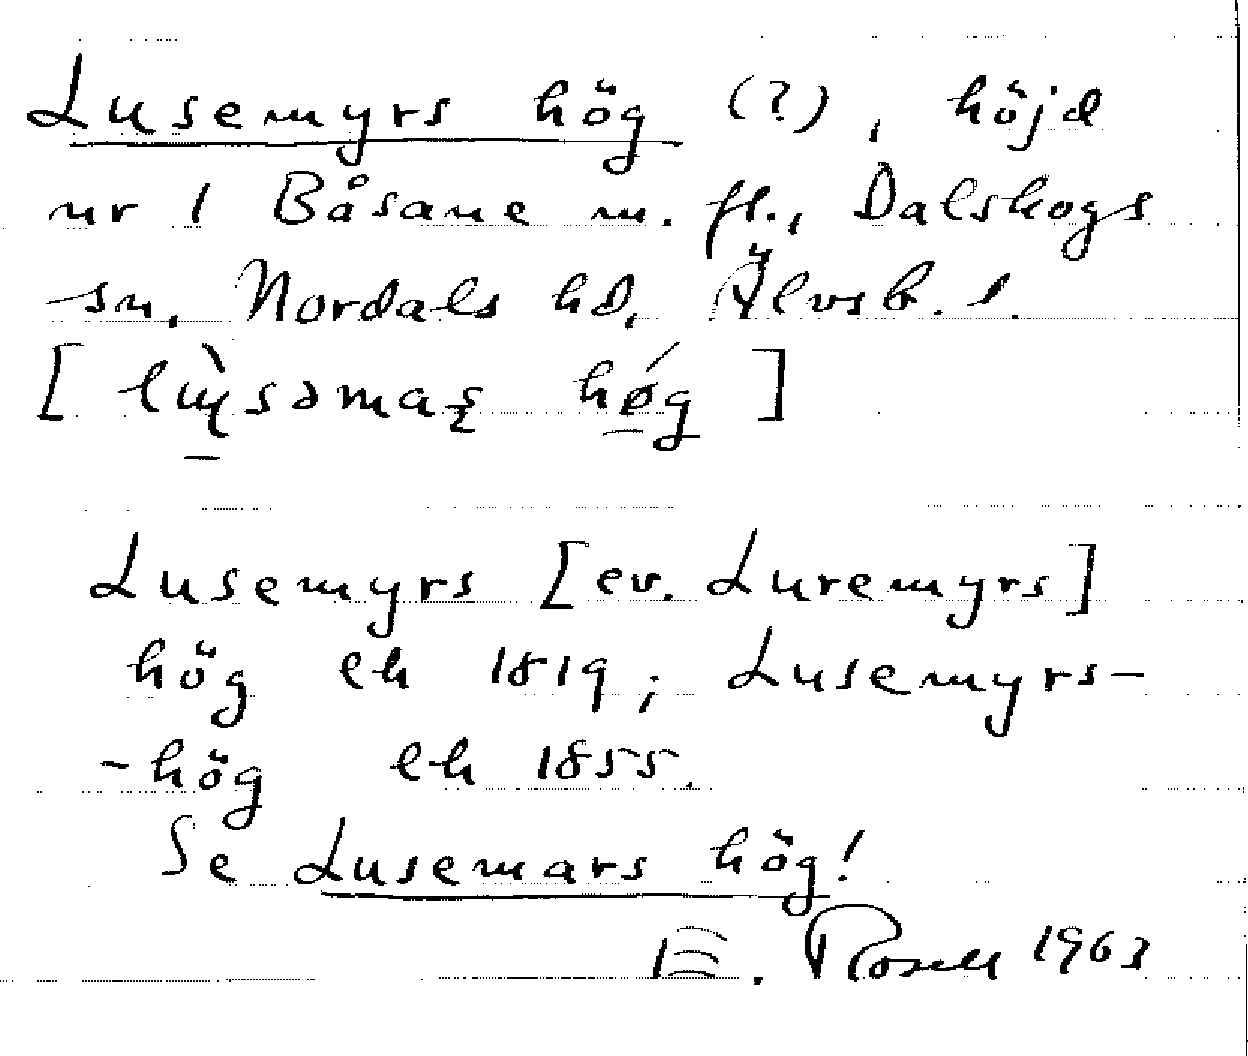 Lusemyrs hög (?), höjd
nr 1 Båsane m. fl., Dalskogs
sn, Nordals hd, Älvsb. l.
[ hög ]
Lusemyrs [ev. Luremyrs]
hög ek 1819; Lusemyrs-
-hög ek 1855.
Se Lusemars hög!
E. Rosell 1963